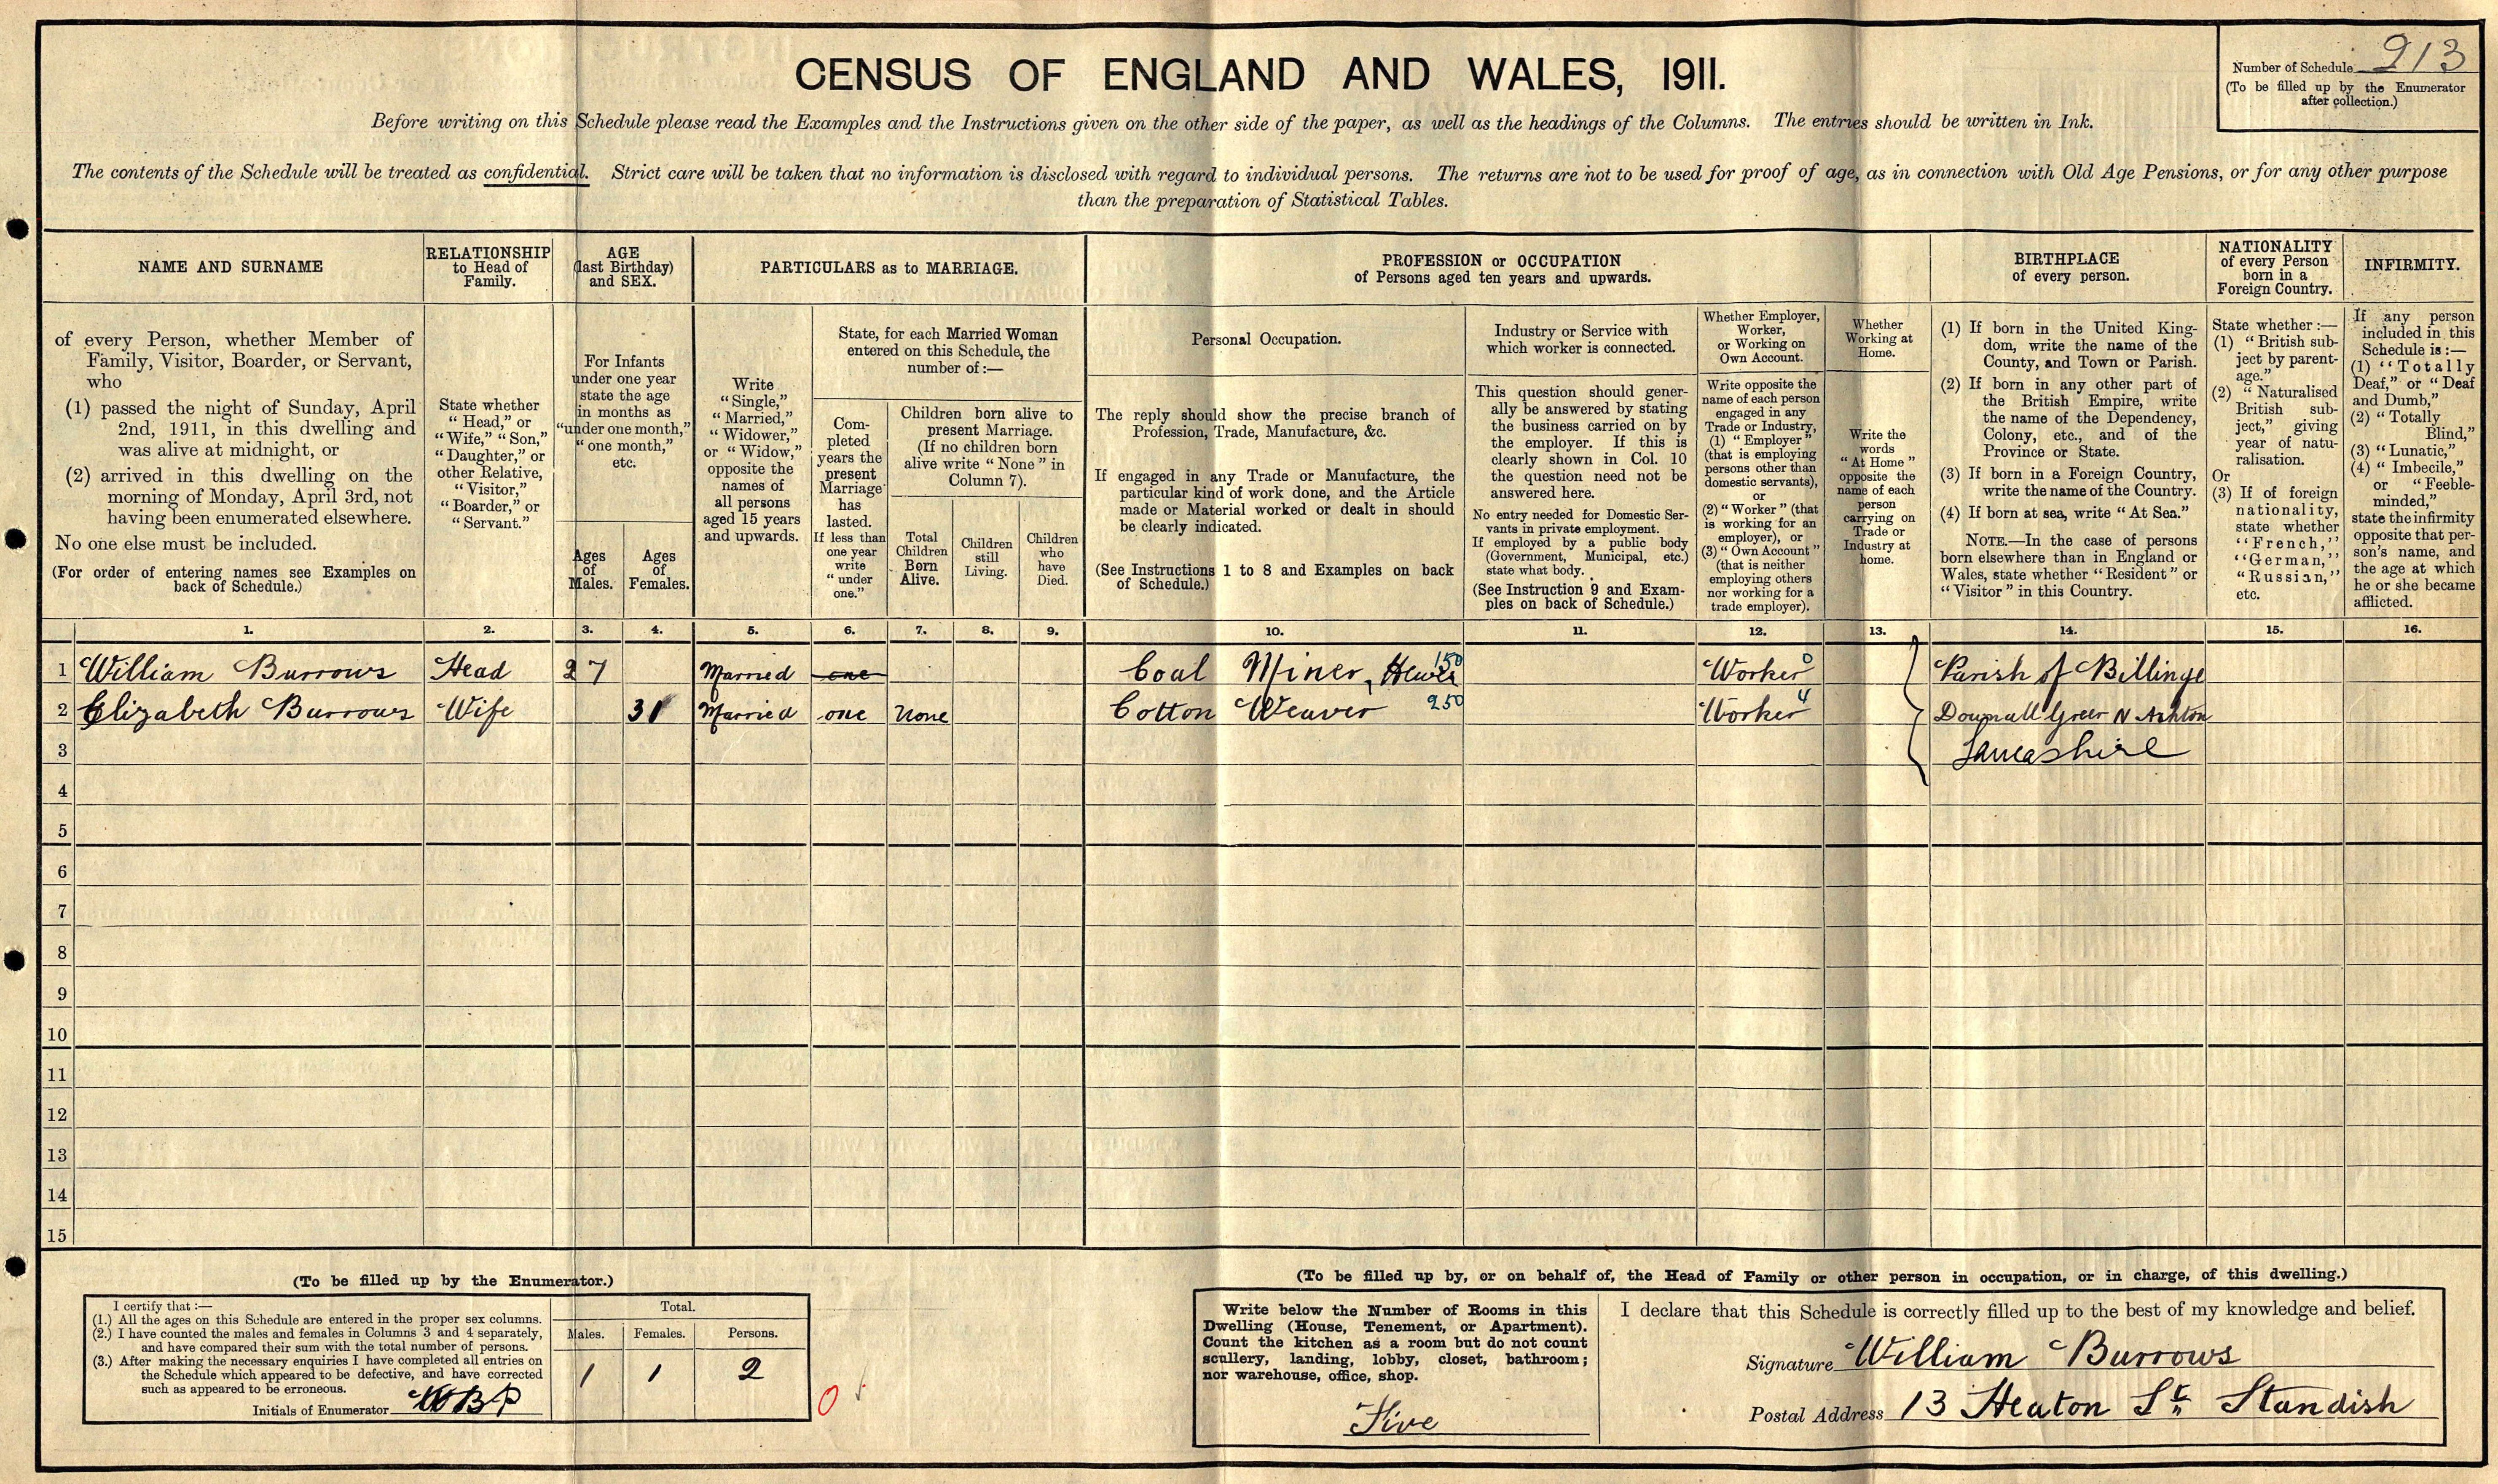 CENSUS OF ENGLAND AND WALES, 1911.
Number of Schedule 213
(To be filled up by the Enumerator
after collection.)
Before writing on this Schedule please read the Examples and the Instructions given on the other side of the paper, as well as the headings of the Columns. The entries should be written in Ink.
The contents of the Schedule will be treated as confidential. Strict care will be taken that no information is disclosed with regard to individual persons. The returns are not to be used for proof of age, as in connection with Old Age Pensions, or for any other purpose
than the preparation of Statistical Tables.
NAME AND SURNAME
of every Person, whether Member of
Family, Visitor, Boarder, or Servant,
who
(1) passed the night of Sunday, April
2nd, 1911, in this dwelling and
was alive at midnight, or
(2) arrived in this dwelling on the
morning of Monday, April 3rd, not
having been enumerated elsewhere.
No one else must be included.
(For order of entering names see Examples on
back of Schedule.)
RELATIONSHIP
to Head of
Family.
State whether
"Head," or
"Wife," "Son,"
"Daughter," or
other Relative,
"Visitor,"
"Boarder," or
"Servant."
AGE
(last Birthday)
and SEX.
For Infants
under one year
state the age
in months as
"under one month,"
"one month,"
etc.
Ages
of
Males.
Ages
of
Females.
PARTICULARS as to MARRIAGE.
Write
"Single,"
"Married,"
"Widower,"
or "Widow,"
opposite the
names of
all persons
aged 15 years
and upwards.
State, for each Married Woman
entered on this Schedule, the
number of :—
Com-
pleted
years the
present
Marriage
has
lasted.
If less than
one year
write
"under
one."
Children born alive to
present Marriage.
(If no children born
alive write "None" in
Column 7).
Total
Children
Born
Alive.
Children
still
Living.
Children
who
have
Died.
PROFESSION or OCCUPATION
of Persons aged ten years and upwards.
Personal Occupation.
The reply should show the precise branch of
Profession, Trade, Manufacture, &c.
If engaged in any Trade or Manufacture, the
particular kind of work done, and the Article
made or Material worked or dealt in should
be clearly indicated.
(See Instructions 1 to 8 and Examples on back
of Schedule.)
Industry or Service with
which worker is connected.
This question should gener-
ally be answered by stating
the business carried on by
the employer. If this is
clearly shown in Col. 10
the question need not be
answered here.
No entry needed for Domestic Ser-
vants in private employment.
If employed by a public body
(Government, Municipal, etc.)
state what body.
(See Instruction 9 and Exam-
ples on back of Schedule.)
Whether Employer,
Worker,
or Working on
Own Account.
Write opposite the
name of each person
engaged in any
Trade or Industry,
(1) "Employer"
(that is employing
persons other than
domestic servants),
or
(2) "Worker" (that
is working for an
employer), or
(3) "Own Account"
(that is neither
employing others
nor working for a
trade employer).
Whether
Working at
Home.
Write the
words
"At Home"
opposite the
name of each
person
carrying on
Trade or
Industry at
home.
BIRTHPLACE
of every person.
(1) If born in the United King-
dom, write the name of the
County, and Town or Parish.
(2) If born in any other part of
the British Empire, write
the name of the Dependency,
Colony, etc., and of the
Province or State.
(3) If born in a Foreign Country,
write the name of the Country.
(4) If born at sea, write "At Sea."
NOTE.—In the case of persons
born elsewhere than in England or
Wales, state whether "Resident" or
"Visitor" in this Country.
NATIONALITY
of every Person
born in a
Foreign Country.
State whether :—
(1) "British sub-
ject by parent-
age."
(2) "Naturalised
British sub-
ject," giving
year of natu-
ralisation.
Or
(3) If of foreign
nationality,
state whether
"French,"
"German,"
"Russian,"
etc.
INFIRMITY.
If any person
included in this
Schedule is :—
(1) "Totally
Deaf," or "Deaf
and Dumb,"
(2) "Totally
Blind,"
(3) "Lunatic,"
(4) "Imbecile,"
or "Feeble-
minded,"
state the infirmity
opposite that per-
son's name, and
the age at which
he or she became
afflicted.
1. 2. 3. 4. 5. 6. 7. 8. 9. 10. 11. 12. 13. 14. 15. 16.
1 William Burrows Head 27 Married one Coal Miner, Hewer 150 Worker 0 Parish of Billinge
2 Elizabeth Burrows Wife 31 Married one None Cotton Weaver 250 Worker 4 Downall Green N Ashton
3 Lancashire
4
5
6
7
8
9
10
11
12
13
14
15
(To be filled up by the Enumerator.)
I certify that :—
(1.) All the ages on this Schedule are entered in the proper sex columns.
(2.) I have counted the males and females in Columns 3 and 4 separately,
and have compared their sum with the total number of persons.
(3.) After making the necessary enquiries I have completed all entries on
the Schedule which appeared to be defective, and have corrected
such as appeared to be erroneous.
Initials of Enumerator WBP
Total.
Males. Females. Persons.
1 1 2
0
(To be filled up by, or on behalf of, the Head of Family or other person in occupation, or in charge, of this dwelling.)
Write below the Number of Rooms in this
Dwelling (House, Tenement, or Apartment).
Count the kitchen as a room but do not count
scullery, landing, lobby, closet, bathroom;
nor warehouse, office, shop.
Five
I declare that this Schedule is correctly filled up to the best of my knowledge and belief.
Signature William Burrows
Postal Address 13 Heaton St. Standish